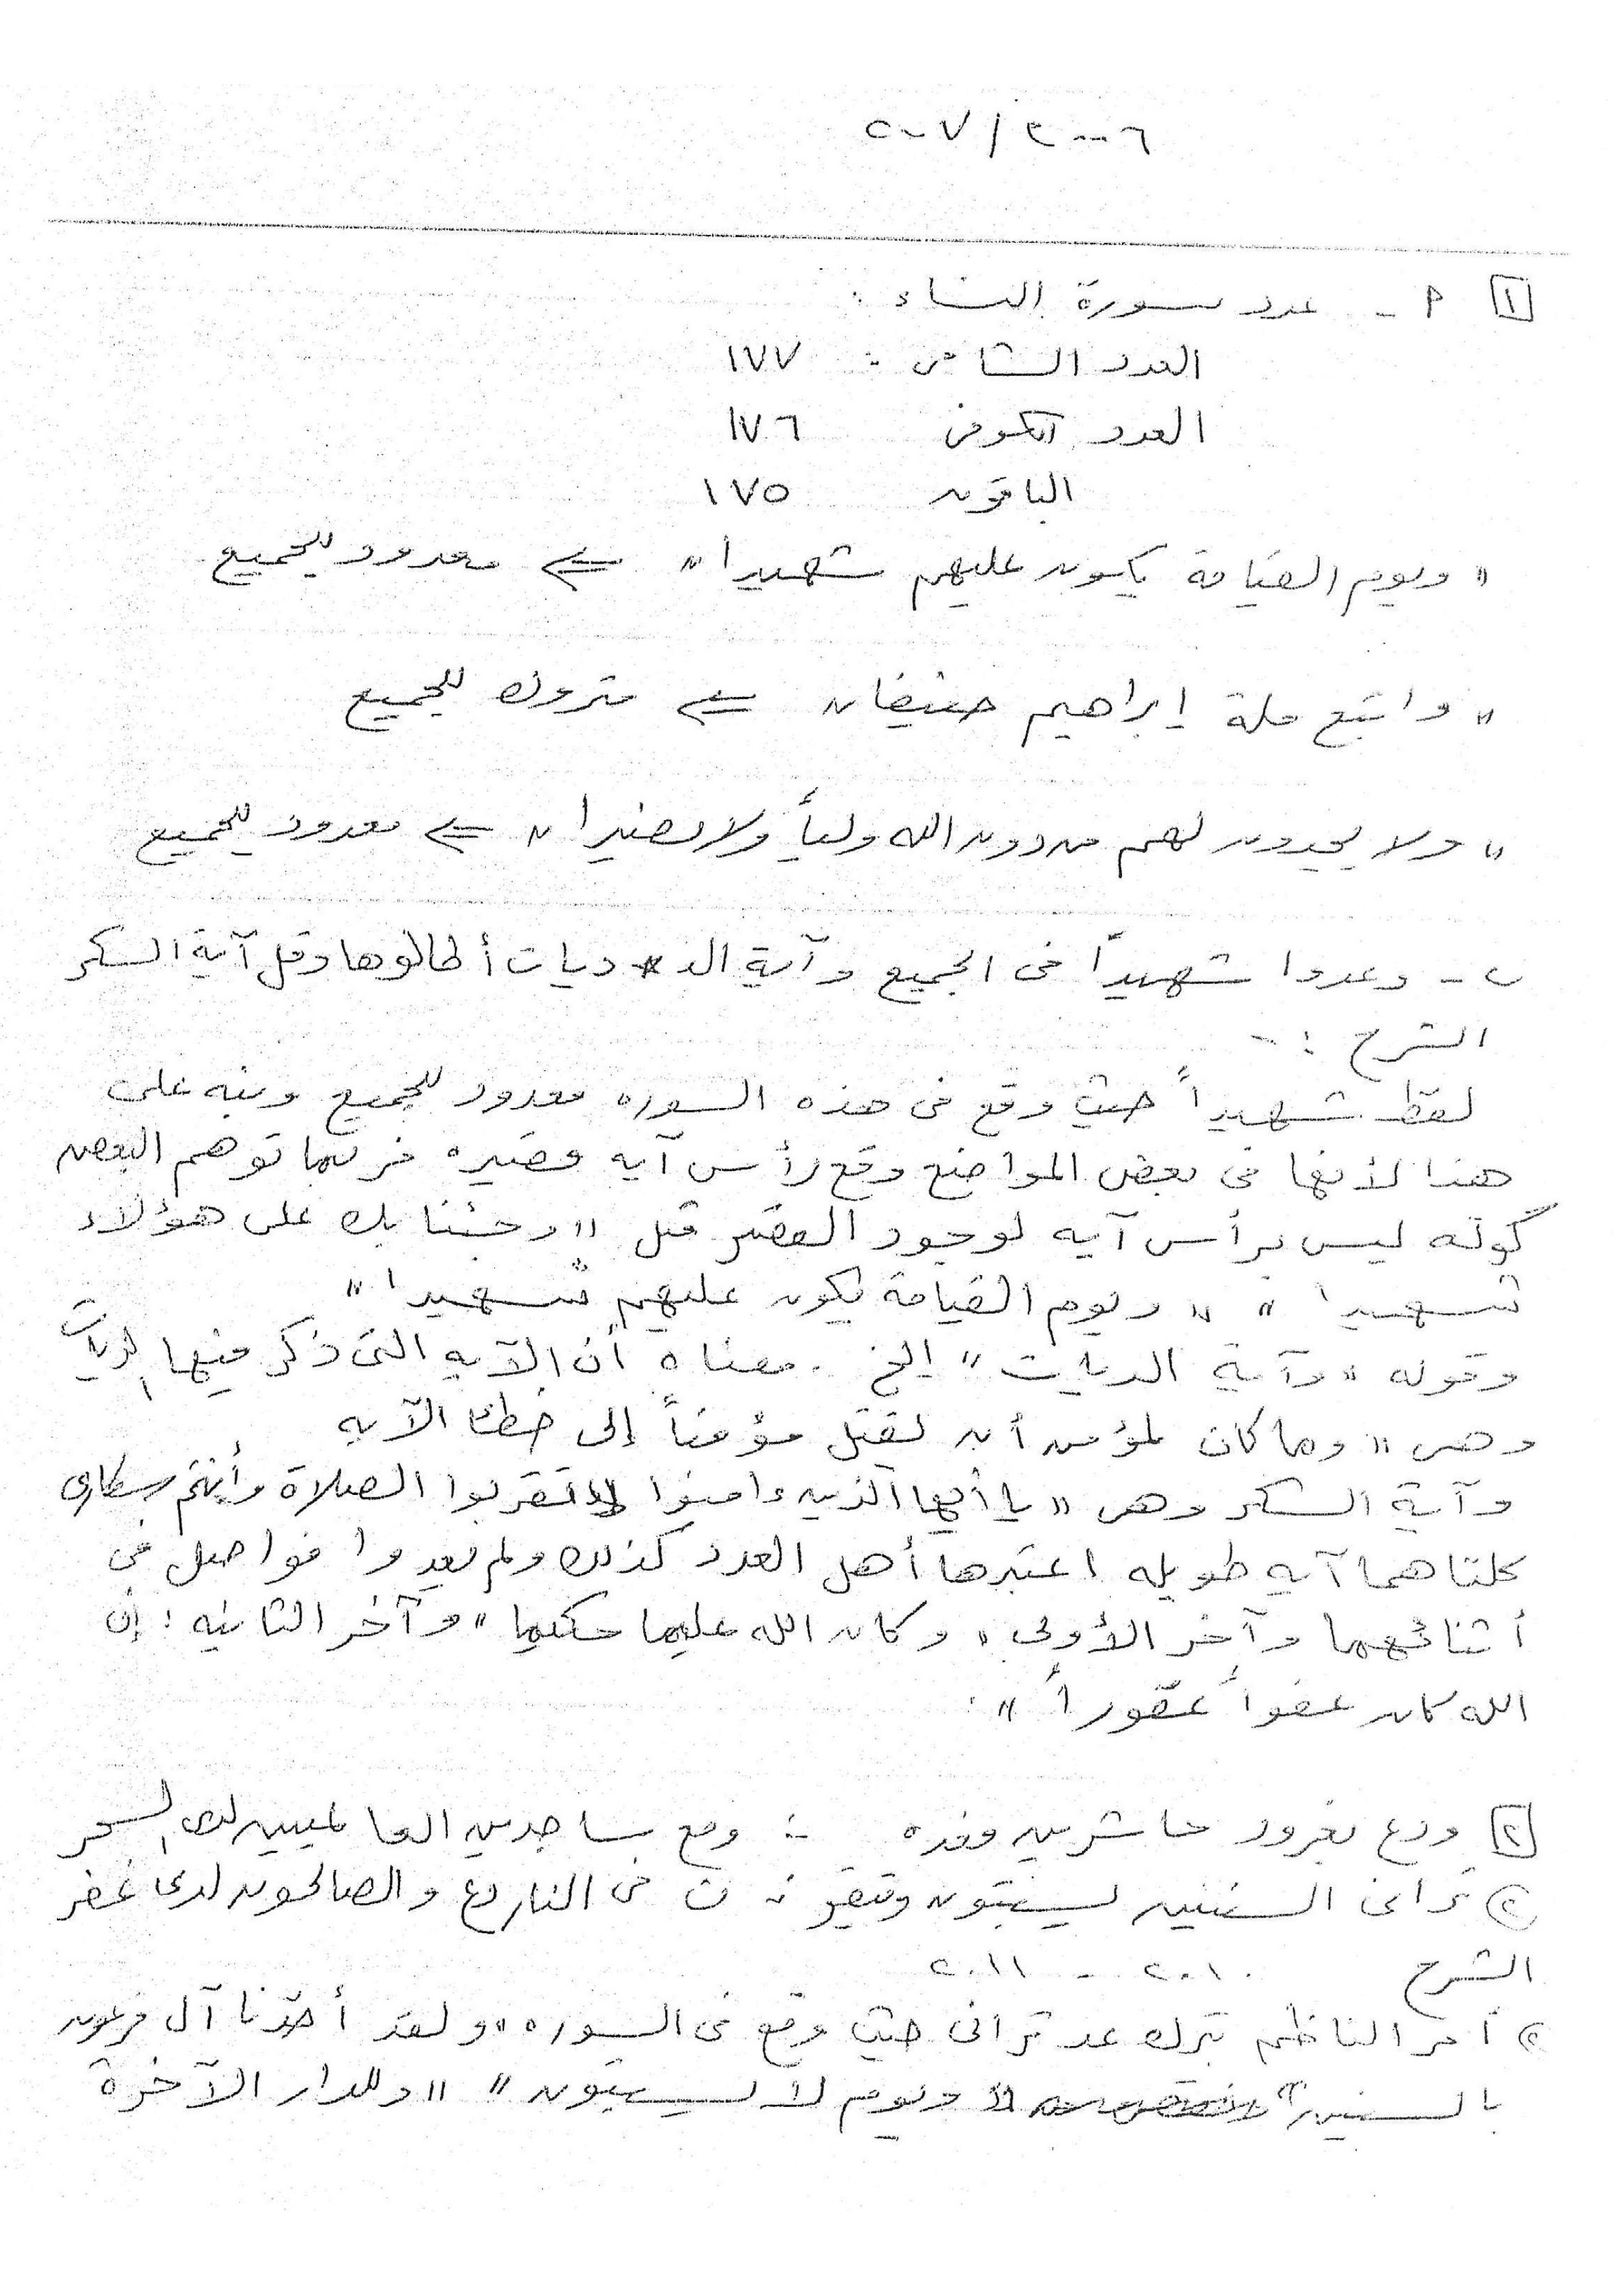 ٢٠٠٦ / ٢٠٠٧
١ أ - عدد سورة النساء :
العدد الشامى : ١٧٧
العدد الكوفى ١٧٦
الباقون ١٧٥
" ويوم القيامة يكون عليهم شهيدا " ⇐ معدود للجميع
" واتبع ملة إبراهيم حنيفا " ⇐ متروك للجميع
" ولا يجدون لهم من دون الله ولياً ولا نصيرا " ⇐ معدود للجميع
ب - وعدوا شهيداً فى الجميع وآية الد ديات أطالوها وقل آية السكر
الشرح : -
لفظ شهيداً حيث وقع فى هذه السوره معدود للجميع ونبه على
هذا لأنها فى بعض المواضع وقع رأس آيه قصيره فربما توهم البعض
كونه ليس برأس آيه لوجود القصر مثل " وجئنا بك على هؤلاء
شهيدا " " ويوم القيامة يكون عليهم شهيدا "
وقوله " وآية الديات " إلخ . معناه أن الآيه التى ذكر فيها الديات
وهى " وما كان لمؤمن أن يقتل مؤمناً إلى خطئا الآيه
وآية السكر وهى " يا أيها الذين ءامنوا لا تقربوا الصلاة وأنتم سكارى
كلتاهما آيه طويله اعتبرها أهل العدد كذلك ولم يعدوا فواصل فى
أثنائهما وآخر الأولى " وكان الله عليما حكيما " وآخر الثانيه : إن
الله كان عفواً غفوراً " .
٢ ودع نمرود حاشرين وفده :- ومع ساجدين العالمين لدى السحر
ج تراني السنين يسبتون وتتقو ن فى النار دع والصالحون لدى غفر
الشرح ٢٠١٠ - ٢٠١١
ج أمر الناظم بترك عد ترانى حيث وقع فى السوره " ولقد أخذنا آل فرعون
بالسنين " " ويوم لا يسبتون " " وللدار الآخرة